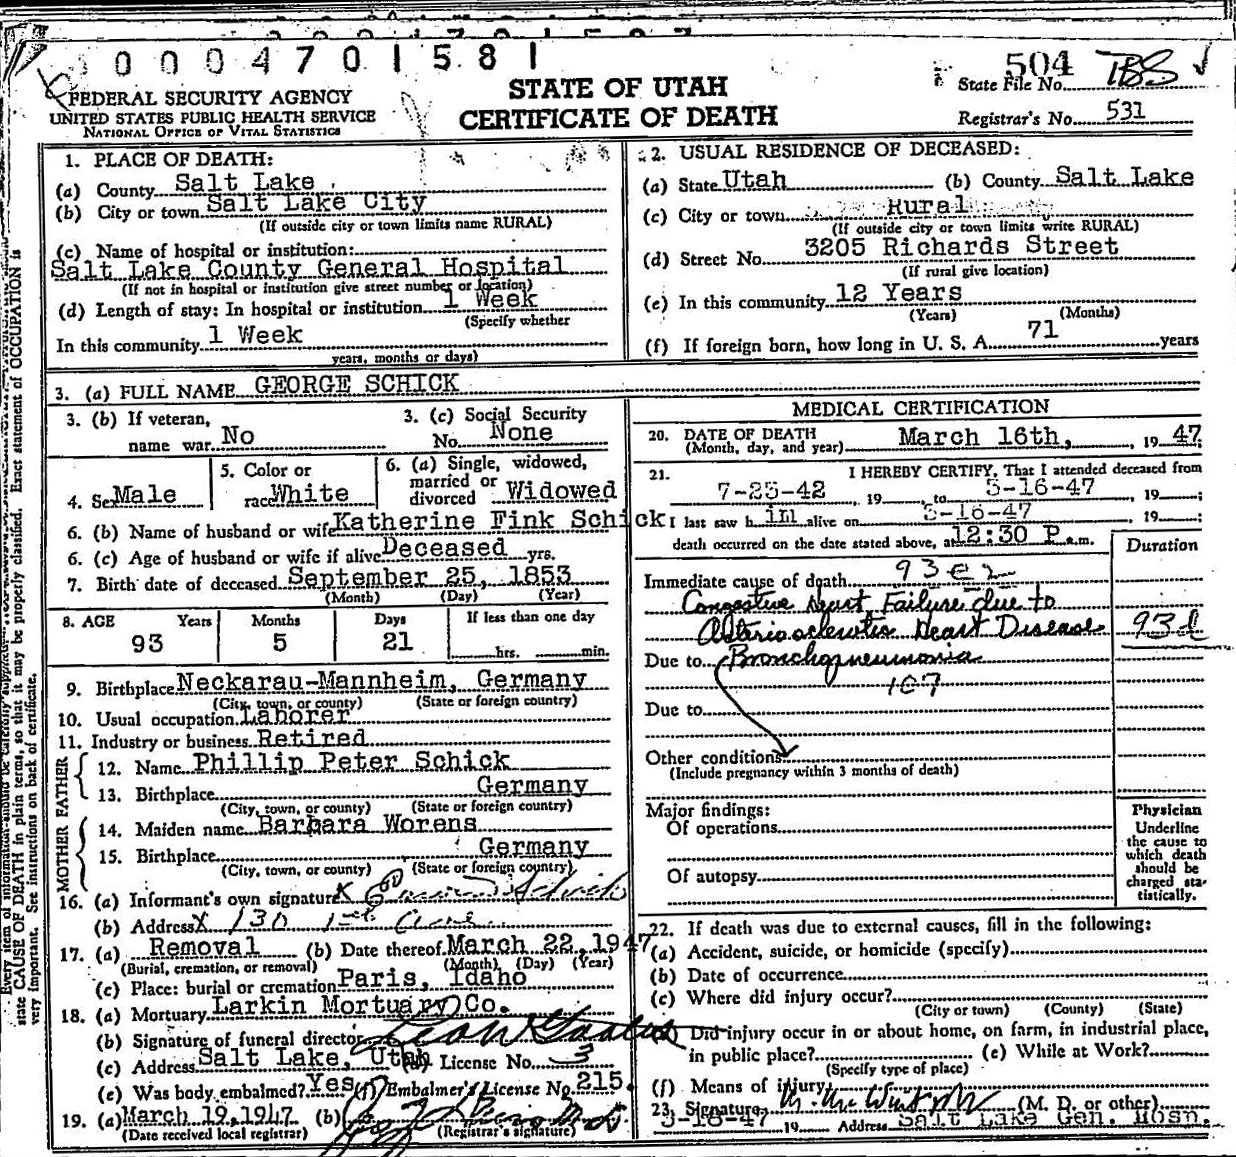 0004701581
504 TBS
State File No.
Registrar's No. 531
FEDERAL SECURITY AGENCY
UNITED STATES PUBLIC HEALTH SERVICE
NATIONAL OFFICE OF VITAL STATISTICS
STATE OF UTAH
CERTIFICATE OF DEATH
1. PLACE OF DEATH:
(a) County Salt Lake
(b) City or town Salt Lake City
(If outside city or town limits name RURAL)
(c) Name of hospital or institution:
Salt Lake County General Hospital
(If not in hospital or institution give street number or location)
(d) Length of stay: In hospital or institution 1 Week
(Specify whether
In this community 1 Week
years, months or days)
2. USUAL RESIDENCE OF DECEASED:
(a) State Utah (b) County Salt Lake
(c) City or town Rural
(If outside city or town limits write RURAL)
(d) Street No. 3205 Richards Street
(If rural give location)
(e) In this community 12 Years
(Years) (Months)
(f) If foreign born, how long in U. S. A. 71 years
3. (a) FULL NAME GEORGE SCHICK
3. (b) If veteran,
name war No
3. (c) Social Security
No. None
4. Sex Male
5. Color or
race White
6. (a) Single, widowed,
married or
divorced Widowed
6. (b) Name of husband or wife Katherine Fink Schick
6. (c) Age of husband or wife if alive Deceased yrs.
7. Birth date of deceased September 25, 1853
(Month) (Day) (Year)
8. AGE Years Months Days If less than one day
93 5 21 hrs. min.
9. Birthplace Neckarau-Mannheim, Germany
(City, town, or county) (State or foreign country)
10. Usual occupation Laborer
11. Industry or business Retired
FATHER
12. Name Phillip Peter Schick
13. Birthplace Germany
(City, town, or county) (State or foreign country)
MOTHER
14. Maiden name Barbara Worens
15. Birthplace Germany
(City, town, or county) (State or foreign country)
16. (a) Informant's own signature X Schick
(b) Address X 130 1st Ave
17. (a) Removal (b) Date thereof March 22, 1947
(Burial, cremation, or removal) (Month) (Day) (Year)
(c) Place: burial or cremation Paris, Idaho
18. (a) Mortuary Larkin Mortuary Co.
(b) Signature of funeral director
(c) Address Salt Lake, Utah License No. 3
(e) Was body embalmed? Yes (f) Embalmer's License No. 215
19. (a) March 19, 1947 (b)
(Date received local registrar) (Registrar's signature)
MEDICAL CERTIFICATION
20. DATE OF DEATH
(Month, day, and year) March 16th, 1947
21. I HEREBY CERTIFY, That I attended deceased from
7-23-42, 19 to 3-16-47, 19 ;
I last saw him alive on 3-16-47, 19 ;
death occurred on the date stated above, at 12:30 P.m.
Duration
Immediate cause of death 93e2
Congestive Heart Failure due to
Arteriosclerotic Heart Disease 93d
Due to Bronchopneumonia
107
Due to
Other conditions
(Include pregnancy within 3 months of death)
Major findings:
Of operations
Of autopsy
Physician
Underline
the cause to
which death
should be
charged sta-
tistically.
22. If death was due to external causes, fill in the following:
(a) Accident, suicide, or homicide (specify)
(b) Date of occurrence
(c) Where did injury occur?
(City or town) (County) (State)
Did injury occur in or about home, on farm, in industrial place,
in public place? (e) While at Work?
(Specify type of place)
(f) Means of injury
23. Signature (M. D. or other)
3-18-47 19 Address Salt Lake Gen. Hosp.
Every item of information should be carefully supplied.
state CAUSE OF DEATH in plain terms, so that it may be properly classified. Exact statement of OCCUPATION is
very important. See instructions on back of certificate.